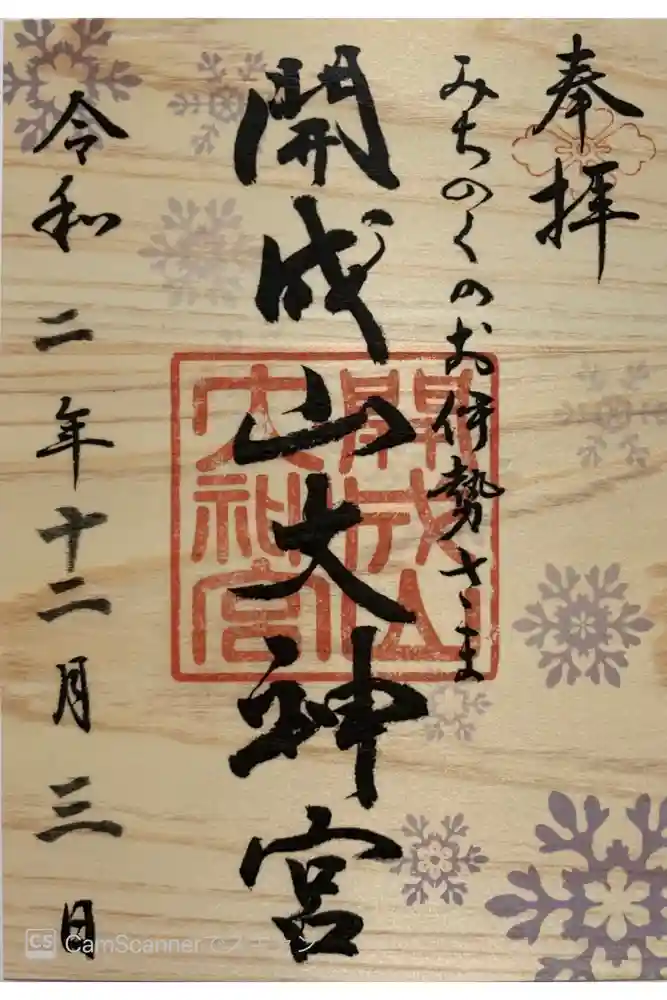 奉拝
みちのくのお伊勢さま
開成山大神宮
令和二年十二月三日
開成山
大神宮
CS CamScannerでスキャン